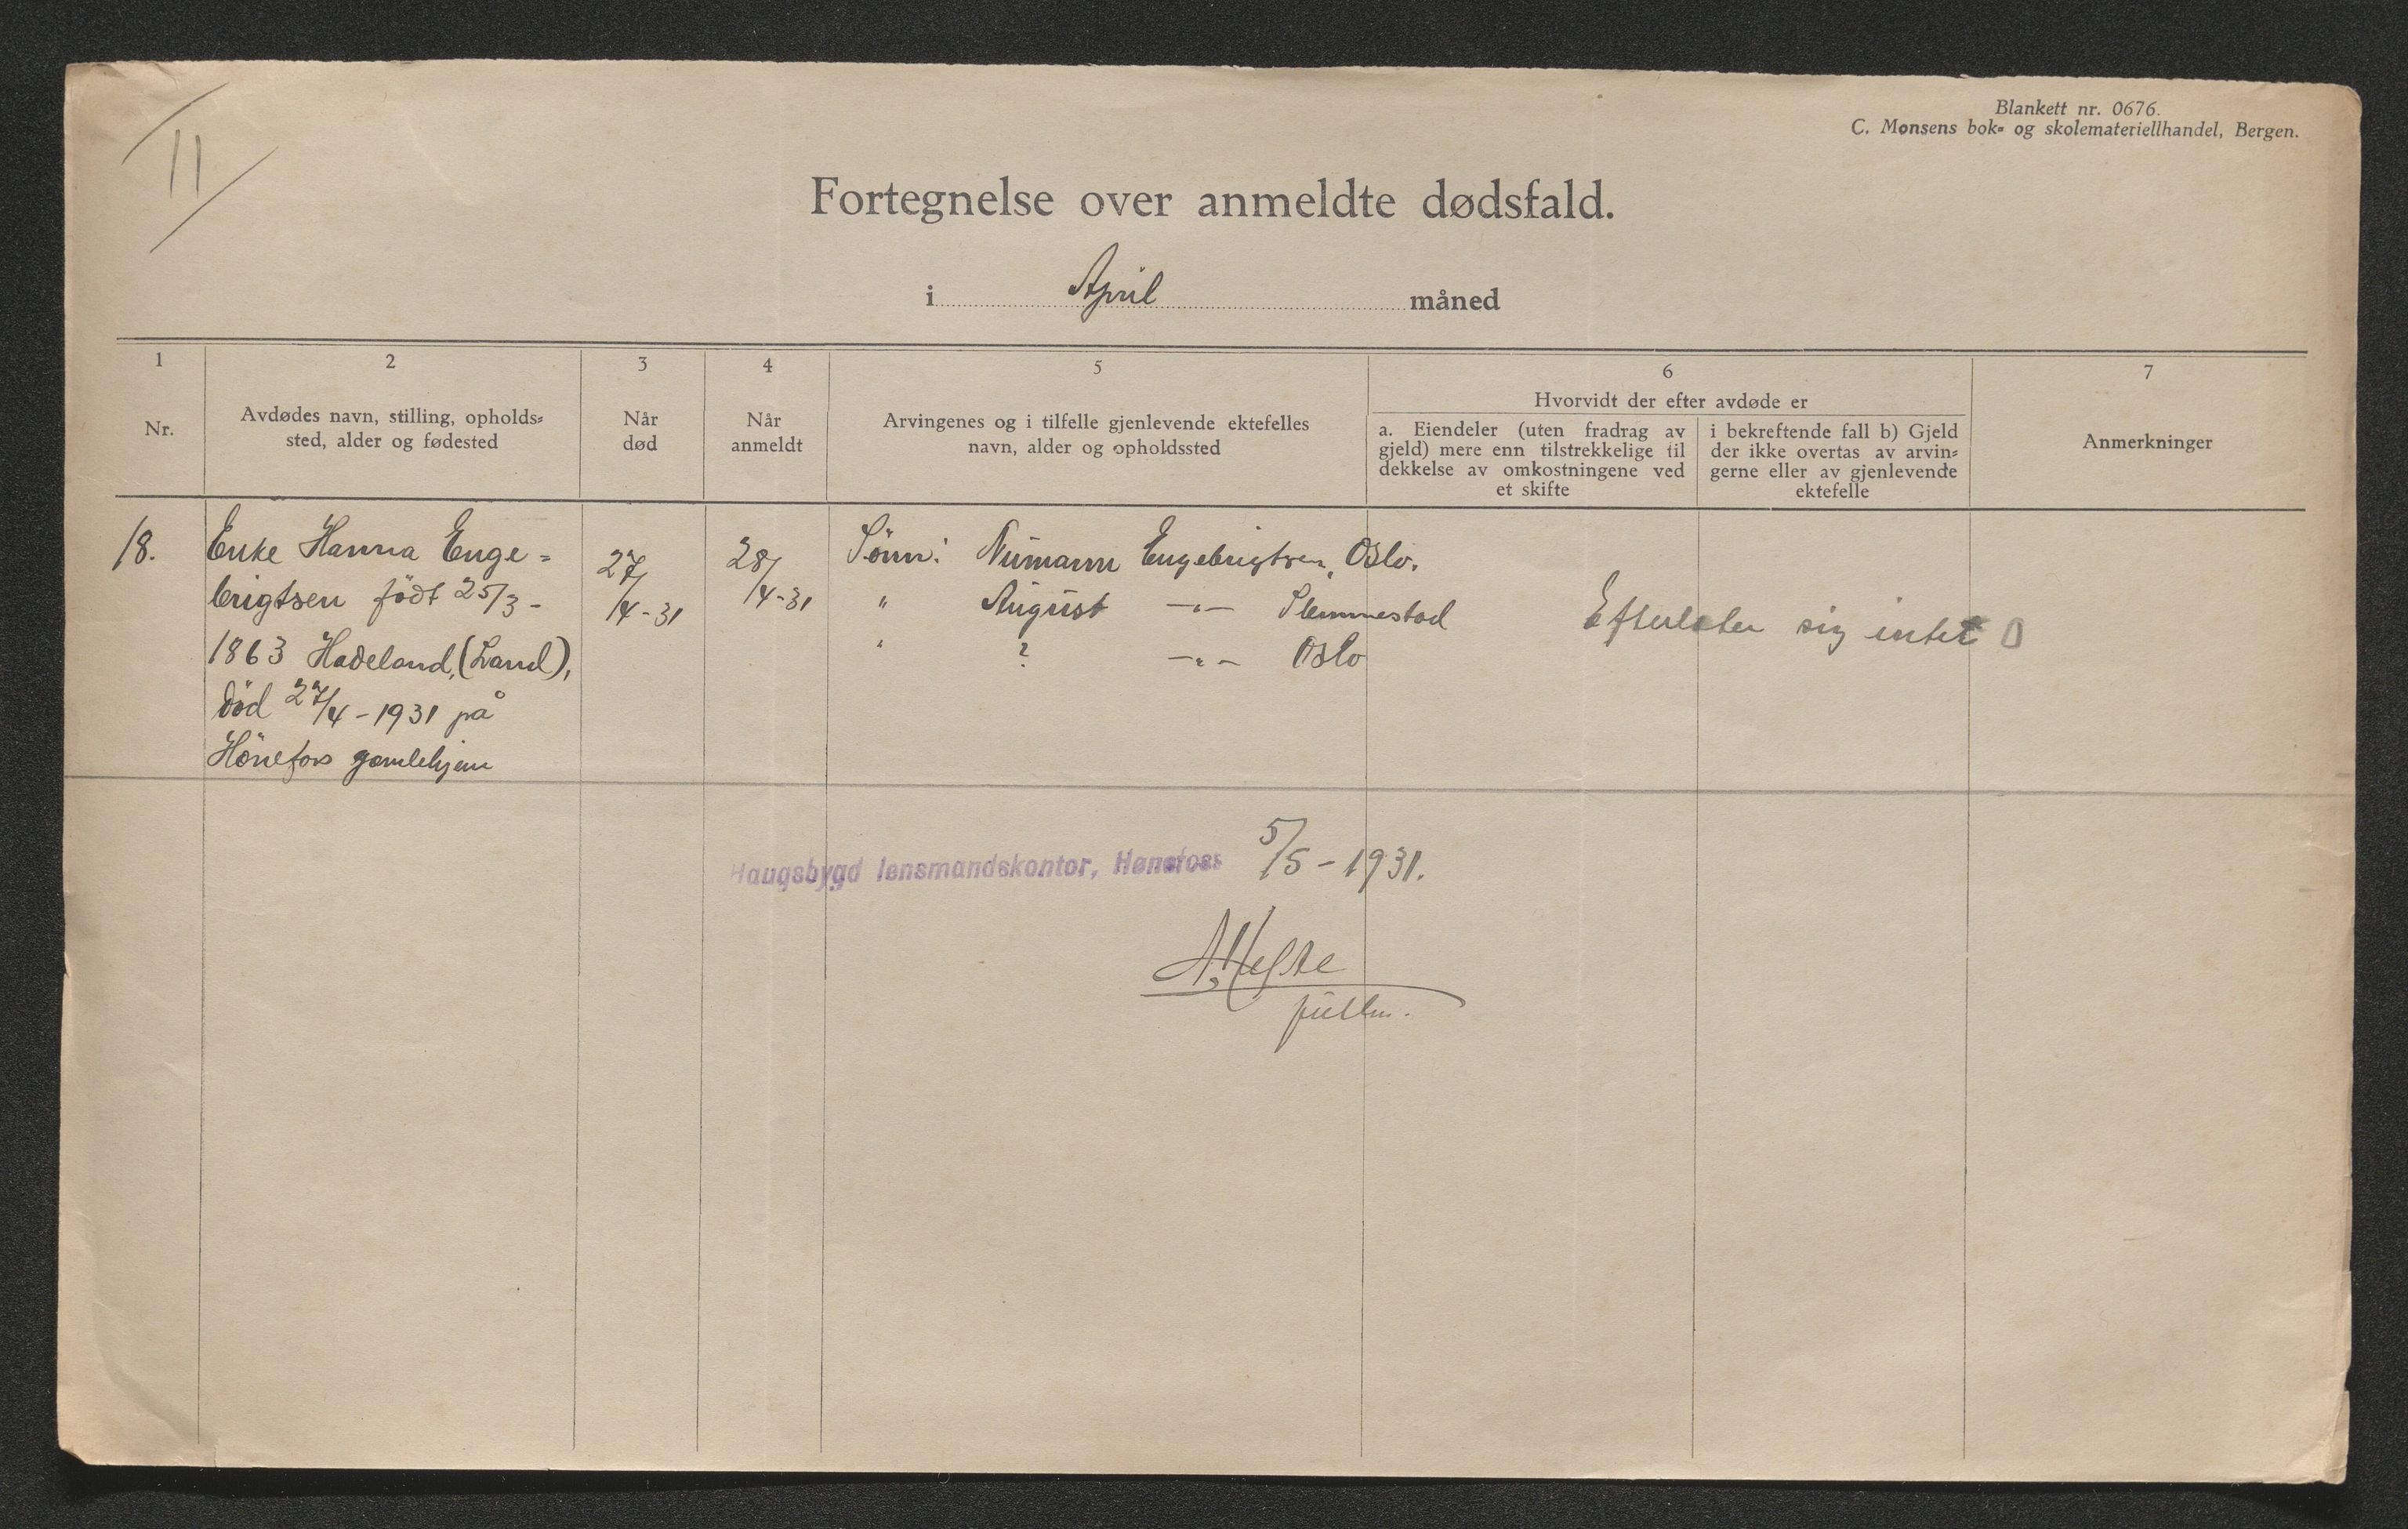 11
Blankett nr. 0676.
C. Monsens bok- og skolemateriellhandel, Bergen.
Fortegnelse over anmeldte dødsfald.
i April måned
1 2 3 4 5 6 7
Nr.
Avdødes navn, stilling, opholds-
sted, alder og fødested
Når
død
Når
anmeldt
Arvingenes og i tilfelle gjenlevende ektefelles
navn, alder og opholdssted
Hvorvidt der efter avdøde er
a. Eiendeler (uten fradrag av
gjeld) mere enn tilstrekkelige til
dekkelse av omkostningene ved
et skifte
i bekreftende fall b) Gjeld
der ikke overtas av arvin-
gerne eller av gjenlevende
ektefelle
Anmerkninger
18.
Enke Hanna Enge-
brigtsen födt 25/3-
1863 Hadeland, (Land),
död 27/4-1931 på
Hönefoss gamlehjem
27/4-31
28/4-31
Sönn: Numann Engebrigtsen, Oslo.
" August -"- Slemmestad
" ? -"- Oslo
Efterlater sig intet 0
Haugsbygd lensmandskontor, Hønefoss 5/5-1931.